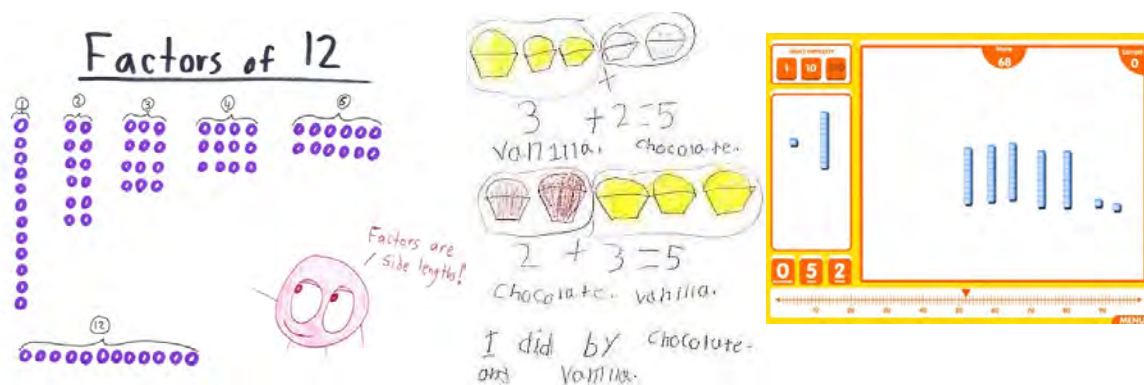 Factors of 12
1 2 3 4
Factors are
side lengths!
12
3 + 2 = 5
vanilla. chocolate.
2 + 3 = 5
chocolate. vanilla.
I did by chocolate.
and vanilla.
1 10
68
0
0 5 2
10 20 30 40 50 60 70 80 90
MENU